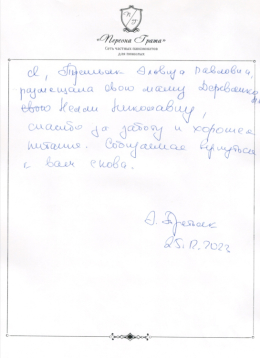 «Персона Грата»
Сеть частных пансионатов
для пожилых
Я, Третьяк Эльвира Павловна,
размещала свою маму
свою Нелли Николаевну,
спасибо за заботу и хорошее
питание. Собираемся вернуться
к вам снова.
Э. Третьяк
25.12.2023